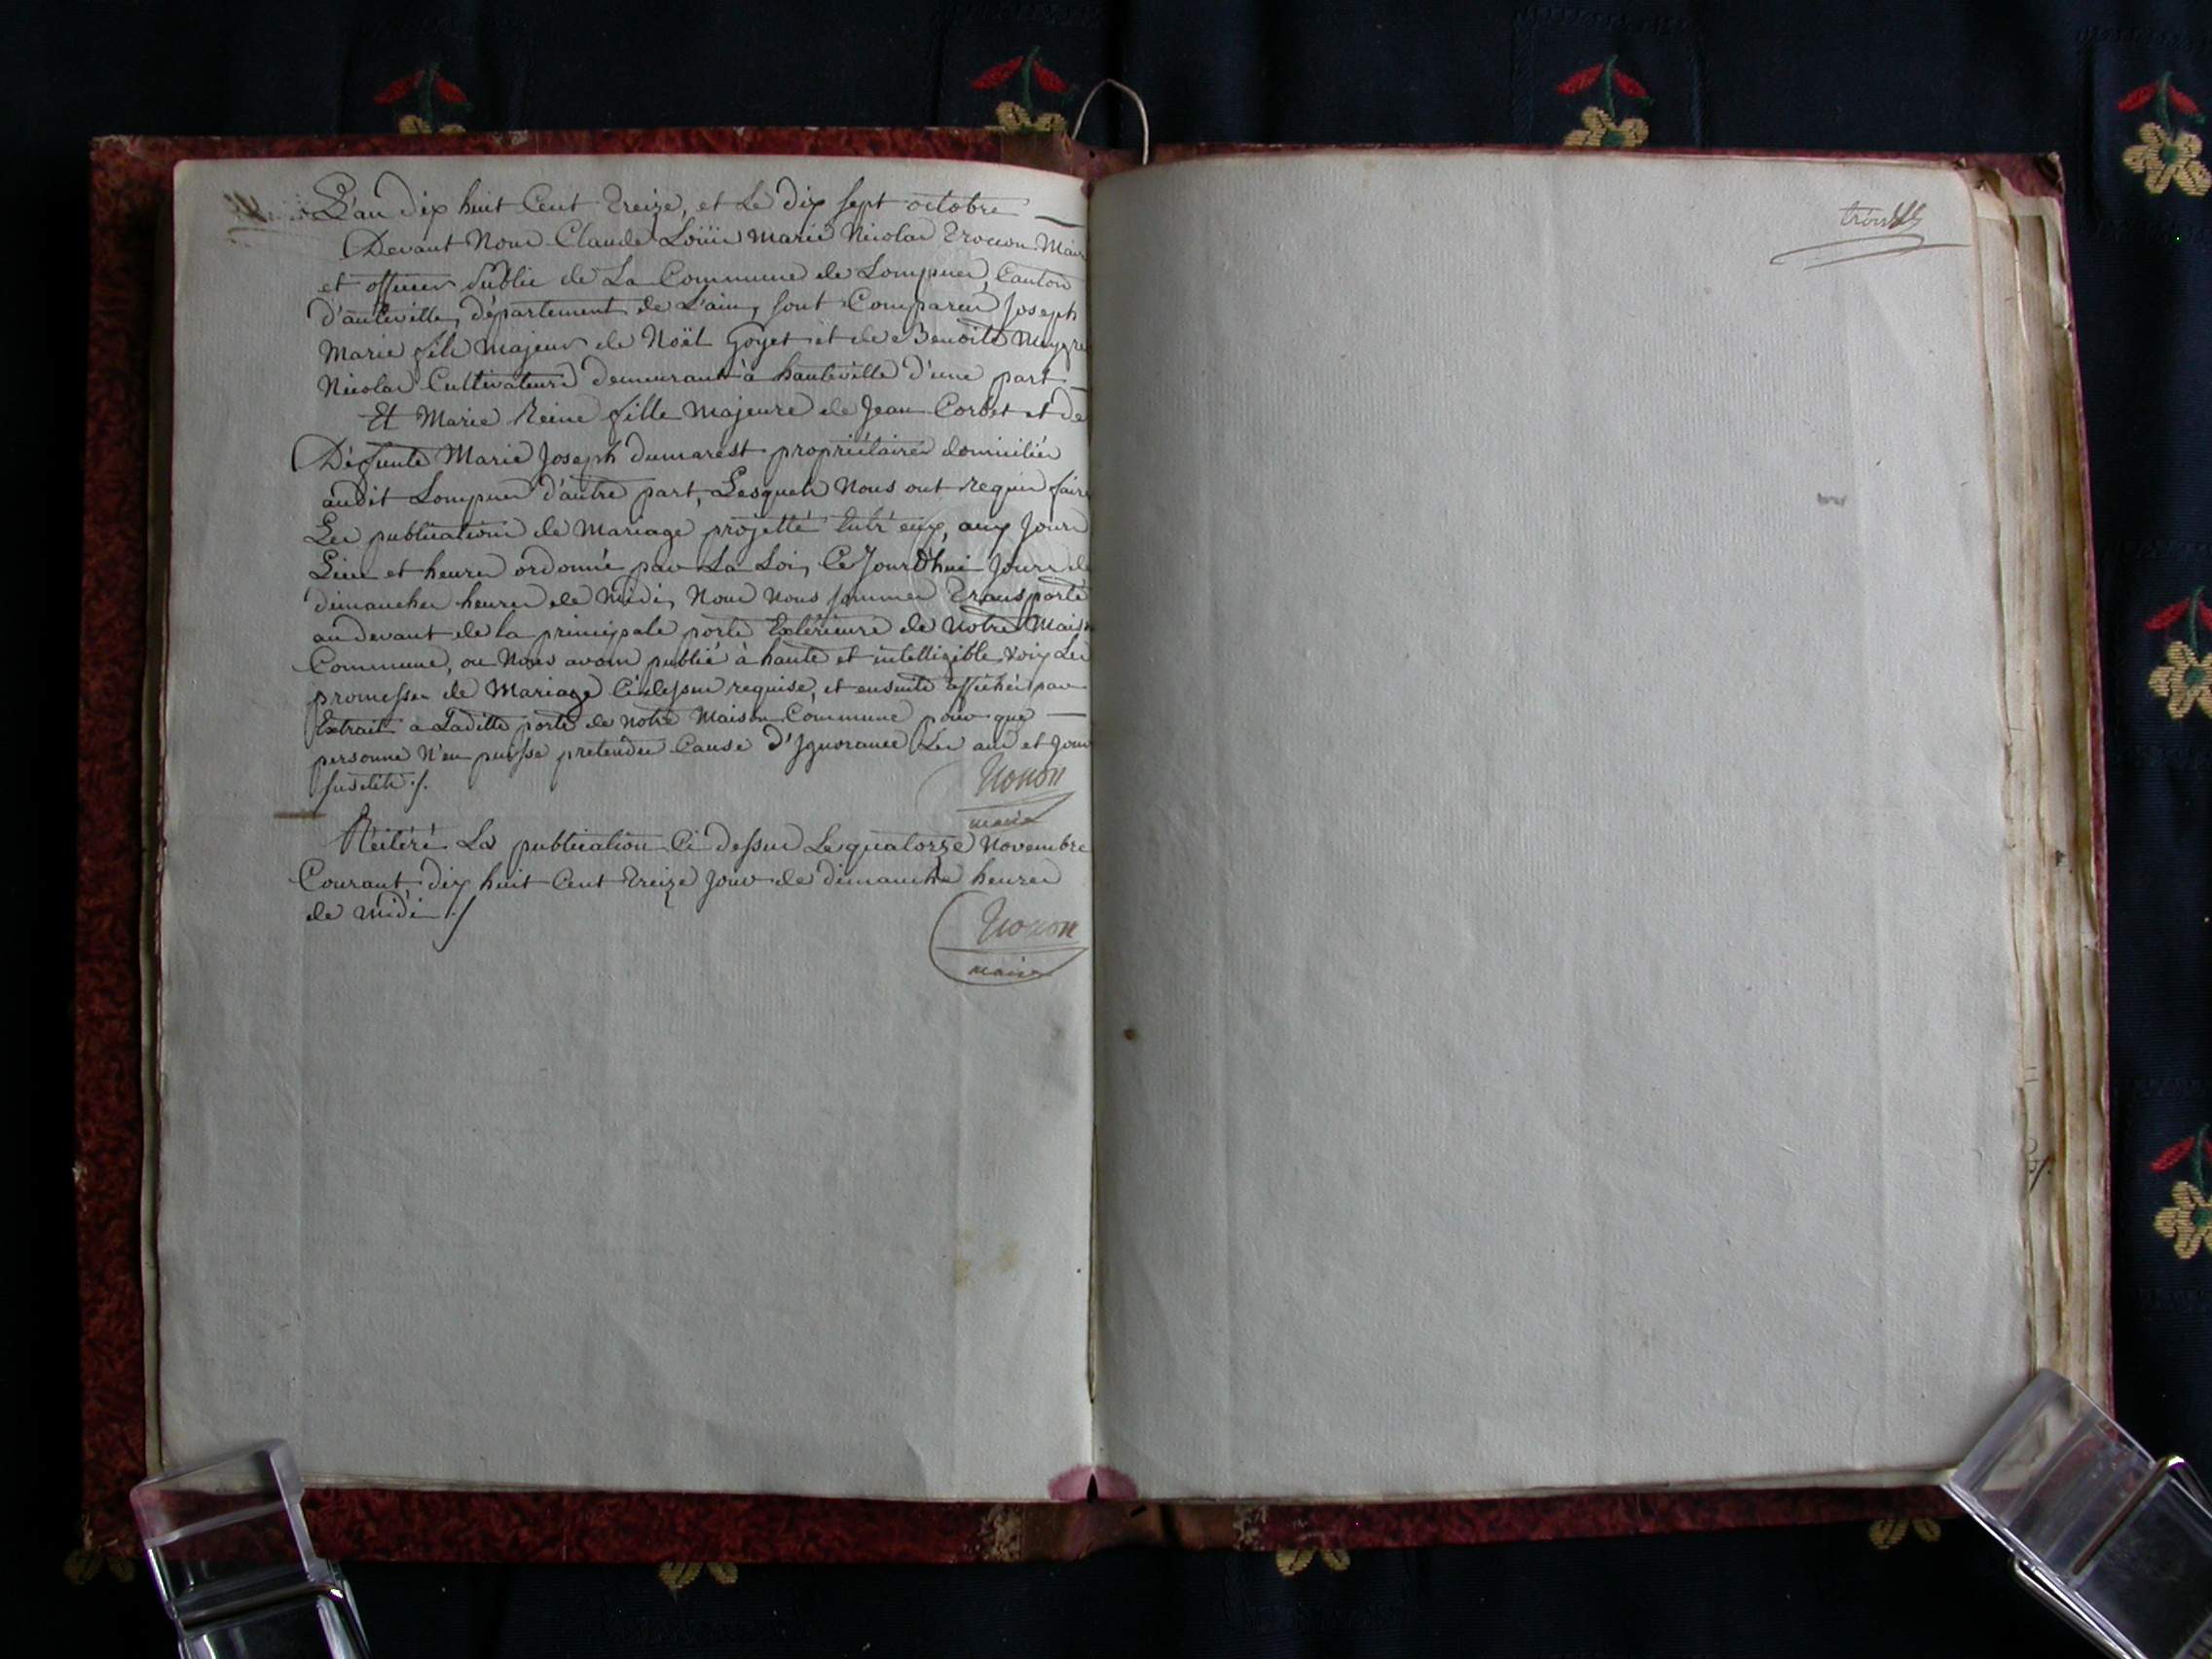 L'an dix huit Cent treize, et Le dix sept octobre
Devant Nous Claude Loüis marie Nicolas Trocon Maire
et officier Public de La Commune de Lompnes, Canton
d'auteville, département de L'ain, sont Comparus Joseph
Marie fils majeur de Noël Goyet et de Benoite
Nicolas Cultivateurs demeurant à hauteville d'une part
Et Marie Reine fille majeure de Jean Corbet et de
Défunte Marie Joseph dumarest propriétaires domiciliés
audit Lompnes d'autre part, Lesquels Nous ont requis faire
Les publications de Mariage projetté entr'eux, aux Jours
Lieu et heures ordonné par La Loi, Ce Jourd'hui Jours de
dimanches heures de midi, Nous Nous sommes Transporté
au devant de la principale porte Extérieure de Notre Maison
Commune, ou Nous avons publié à haute et intelligible voix Les
promesses de Mariage Cidessus requise, et ensuite affichés par
Extrait a Laditte porte de notre Maison Commune pour que
personne N'en puisse pretendre Cause d'Ignorance Les an et Jour
susdits ./.
Trocon
maire
Réitéré La publication Ci dessus Le quatorze Novembre
Courant dix huit Cent treize jour de dimanche heures
de midi ./
Trocon
maire